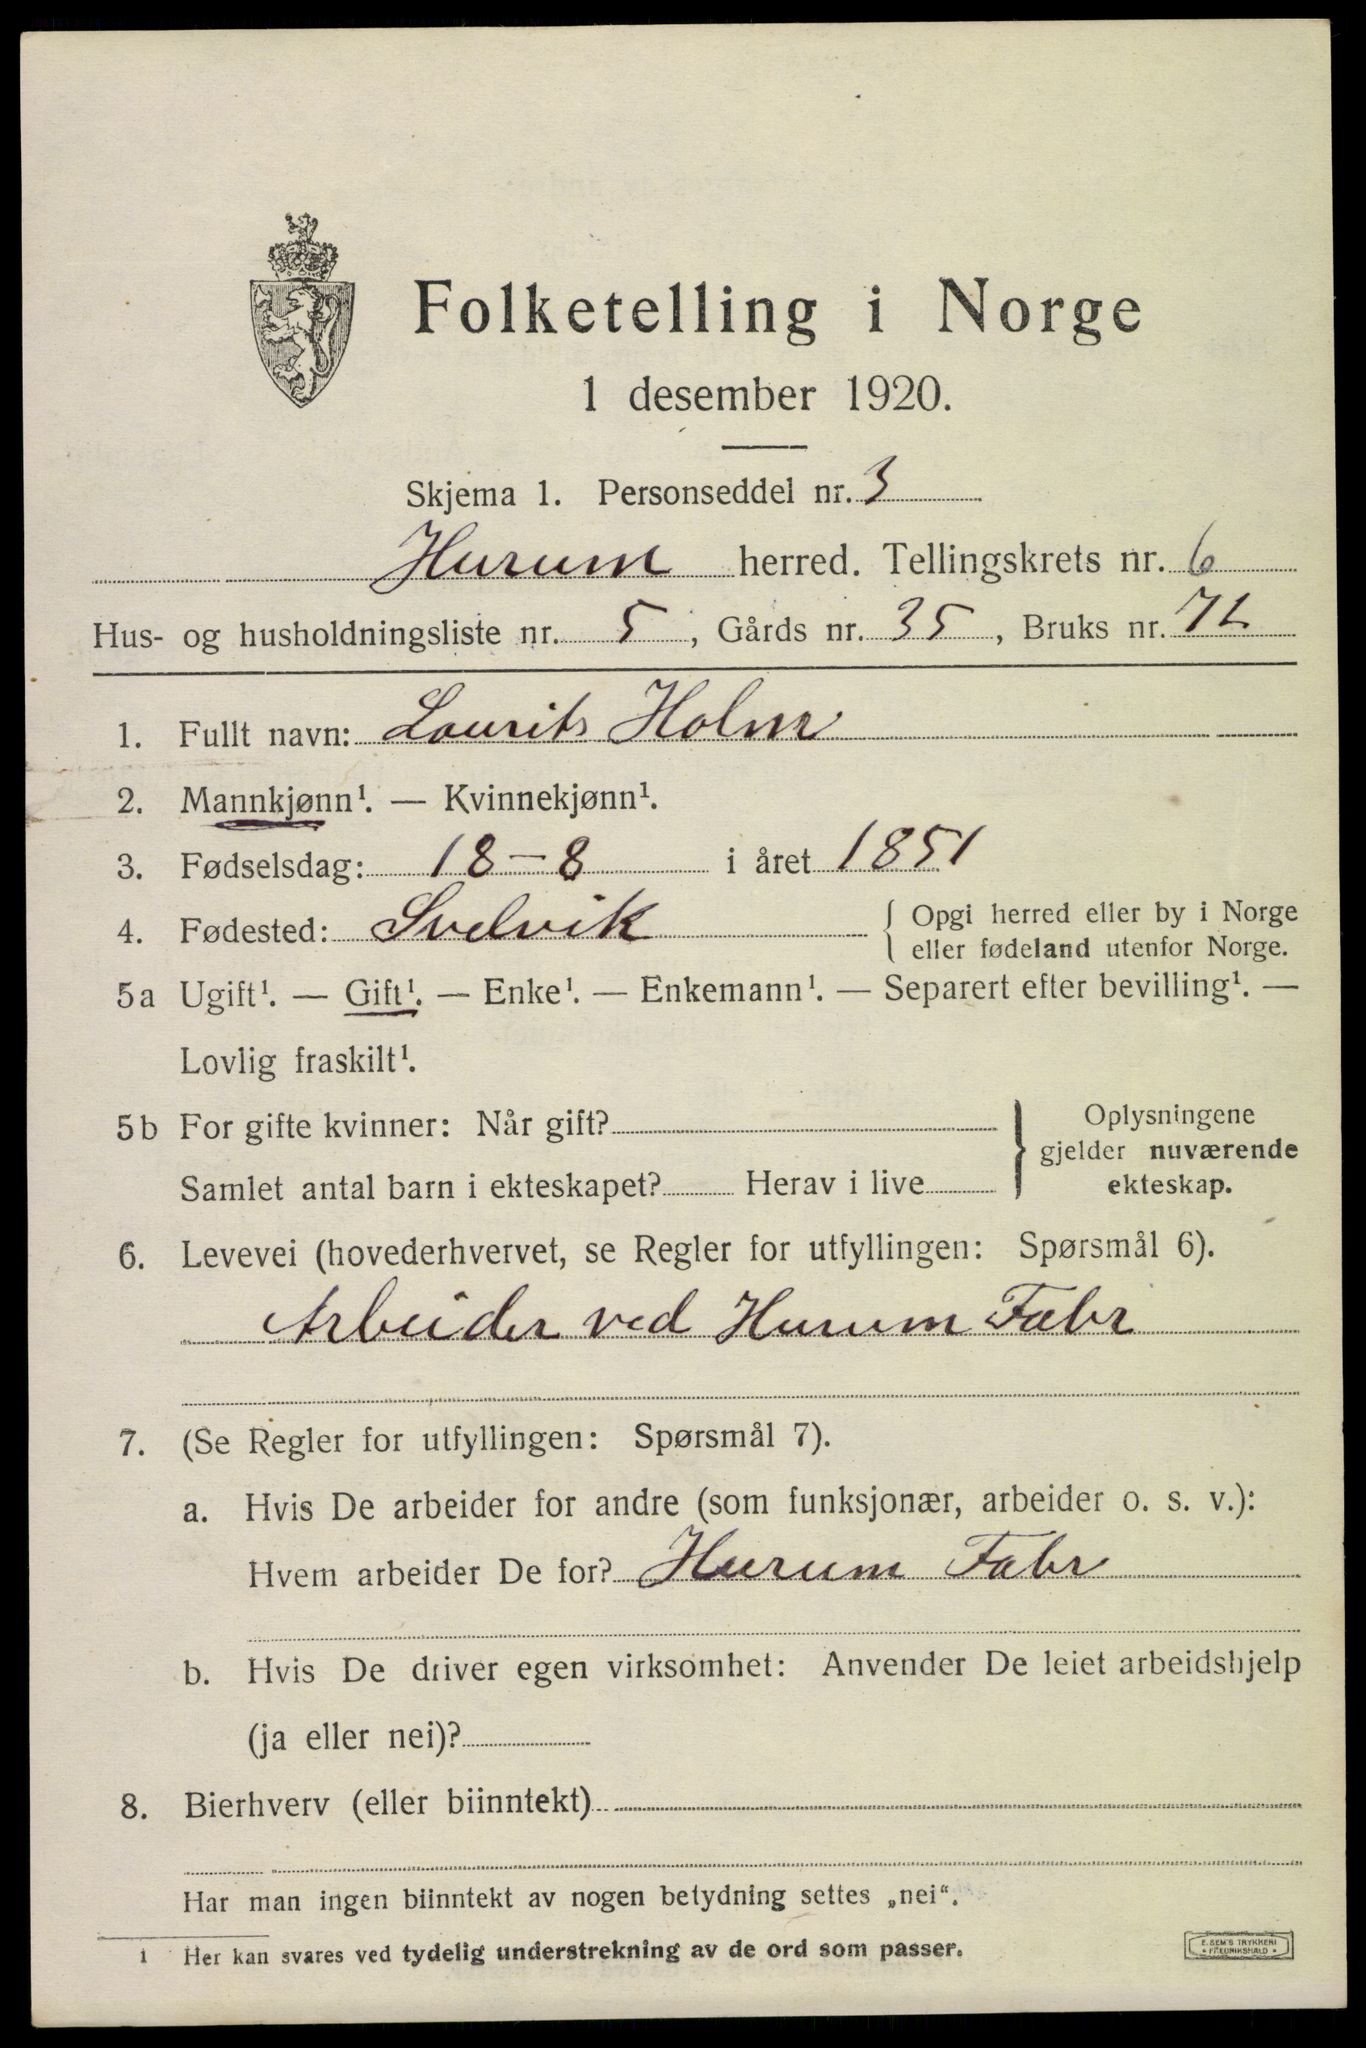 Folketelling i Norge
1 desember 1920.
Skjema 1. Personseddel nr. 3
Hurum herred. Tellingskrets nr. 6
Hus- og husholdningsliste nr. 5, Gårds nr. 35, Bruks nr. 72
1. Fullt navn: Laurits Holm
2. Mannkjønn¹. — Kvinnekjønn¹.
3. Fødselsdag: 18-8 i året 1851
4. Fødested: Svelvik { Opgi herred eller by i Norge
eller fødeland utenfor Norge.
5a Ugift¹. — Gift¹. — Enke¹. — Enkemann¹. — Separert efter bevilling¹. —
Lovlig fraskilt¹.
5b For gifte kvinner: Når gift?
Samlet antal barn i ekteskapet? Herav i live
} Oplysningene
gjelder nuværende
ekteskap.
6. Levevei (hovederhvervet, se Regler for utfyllingen: Spørsmål 6).
Arbeider ved Hurum Fabr
7. (Se Regler for utfyllingen: Spørsmål 7).
a. Hvis De arbeider for andre (som funksjonær, arbeider o. s. v.):
Hvem arbeider De for? Hurum Fabr
b. Hvis De driver egen virksomhet: Anvender De leiet arbeidshjelp
(ja eller nei)?
8. Bierhverv (eller biinntekt)
Har man ingen biinntekt av nogen betydning settes „nei“.
1 Her kan svares ved tydelig understrekning av de ord som passer.
E. SEM'S TRYKKERI
• FREDRIKSHALD •